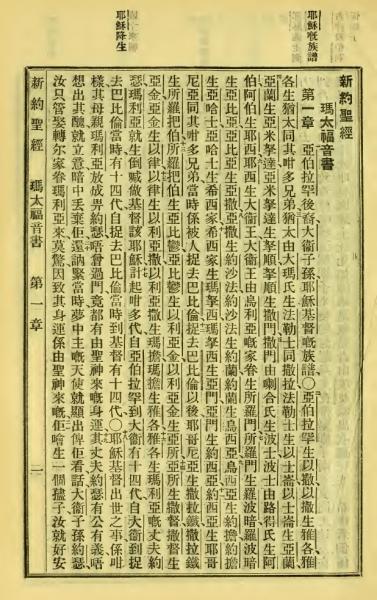 耶穌嘅族譜
耶穌降生
新約聖經
瑪太福音書
第一章 亞伯拉罕後裔大衞子孫耶穌基督嘅族譜〇亞伯拉罕生以撒以撒生雅各雅
各生猶太同其咁多兄弟猶太由大瑪氏生法勒士同撒拉法勒士生以士崙以士崙生亞蘭
亞蘭生亞米拏達亞米拏達生拏順拏順生撒門撒門由喇合氏生波士波士由路得氏生阿
伯阿伯生耶西耶西生大衞王大衞王由烏利亞嘅家眷生所羅門所羅門生羅波暗羅波暗
生亞比亞亞比亞生亞撒亞撒生約沙法約沙法生約蘭約蘭生烏西亞烏西亞生約擔約擔
生亞哈士亞哈士生希西家希西家生瑪拏西瑪拏西生亞門亞門生約西亞約西亞生耶哥
尼亞同其咁多兄弟當時係被人捉去巴比倫捉去巴比倫以後耶哥尼亞生撒拉鐵撒拉鐵
生所羅把伯所羅把伯生亞比鬱亞比鬱生以利亞金以利亞金生亞所亞所生撒督撒督生
亞金亞金生以律以律生以利亞撒以利亞撒生瑪擔瑪擔生雅各雅各生瑪利亞嘅丈夫約
瑟瑪利亞就生倒喊做基督該耶穌計起咁多代自亞伯拉罕到大衞有十四代自大衞到捉
去巴比倫當時有十四代自捉去巴比倫當時到基督有十四代〇耶穌基督出世之事係咁
樣其母親瑪利亞放成畀約瑟唔曾過門竟都有由聖神來嘅身運其丈夫約瑟有公有義唔
想出其醜就立意暗中丟棄佢還訥緊當時夢中主嘅天使就顯出俾佢看話大衞子孫約瑟
汝只管娶轉尔家眷瑪利亞來莫驚因致其身運係由聖神來嘅佢噲生一個子汝就好安
新約聖經 瑪太福音書 第一章 一